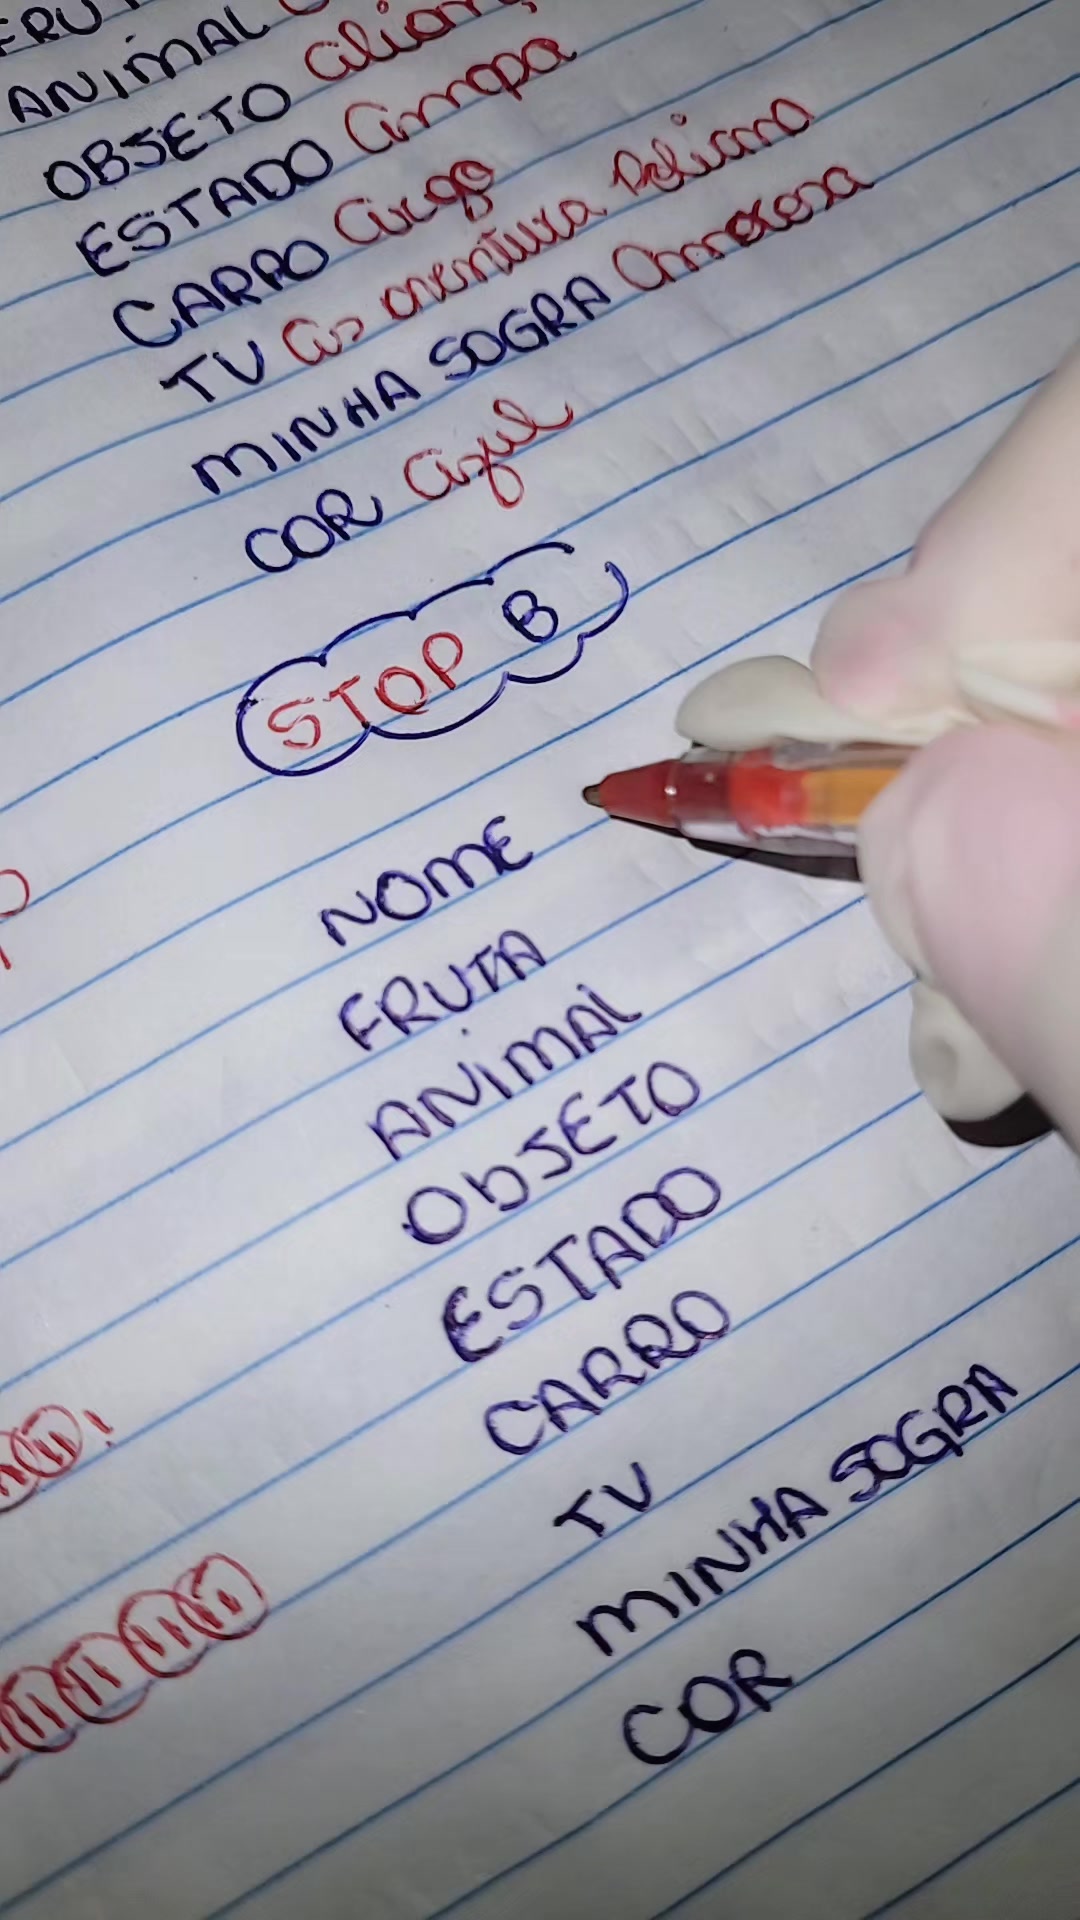 ANIMAL
OBJETO
ESTADO Amapa
CARRO Argo
TV As aventura Poliana
MINHA SOGRA Amorosa
COR Azul
STOP B
NOME
FRUTA
ANIMAL
ObJETO
ESTADO
CARRO
TV
MINHA SOGRA
COR